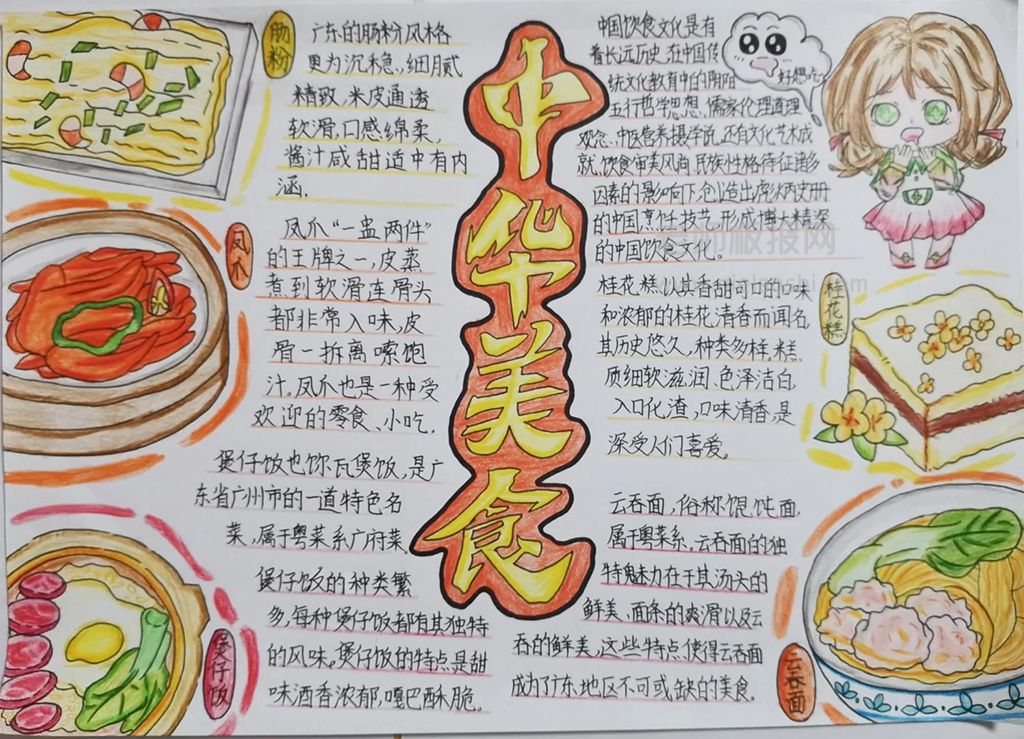 中华美食
肠粉
广东的肠粉风格
更为沉稳、细腻
精致,米皮通透
软滑,口感绵柔,
酱汁咸甜适中有内
涵.
凤爪
凤爪“一盅两件”
的王牌之一,皮蒸
煮到软滑连骨头
都非常入味,皮
骨一拆离嗦饱
汁,凤爪也是一种受
欢迎的零食、小吃.
煲仔饭也称瓦煲饭,是广
东省广州市的一道特色名
菜,属于粤菜系广府菜,
煲仔饭的种类繁
多,每种煲仔饭都有其独特
的风味。煲仔饭的特点是甜
味酒香浓郁,嘎巴酥脆。
煲仔饭
中国饮食文化是有
着长远历史,在中国传
统文化教育中的阴阳
五行哲学思想、儒家伦理道理
观念、中医营养摄学说,还有文化艺术成
就、饮食审美风尚、民族性格特征诸多
因素的影响下,创造出彪炳史册
的中国烹饪技艺,形成博大精深
的中国饮食文化。
好想吃
桂花糕
桂花糕以其香甜可口的口味
和浓郁的桂花清香而闻名,
其历史悠久,种类多样,糕
质细软滋润、色泽洁白,
入口化渣,口味清香,是
深受人们喜爱。
云吞面,俗称馄饨面,
属于粤菜系,云吞面的独
特魅力在于其汤头的
鲜美、面条的爽滑以及云
吞的鲜美,这些特点使得云吞面
成为了广东地区不可或缺的美食。
云吞面